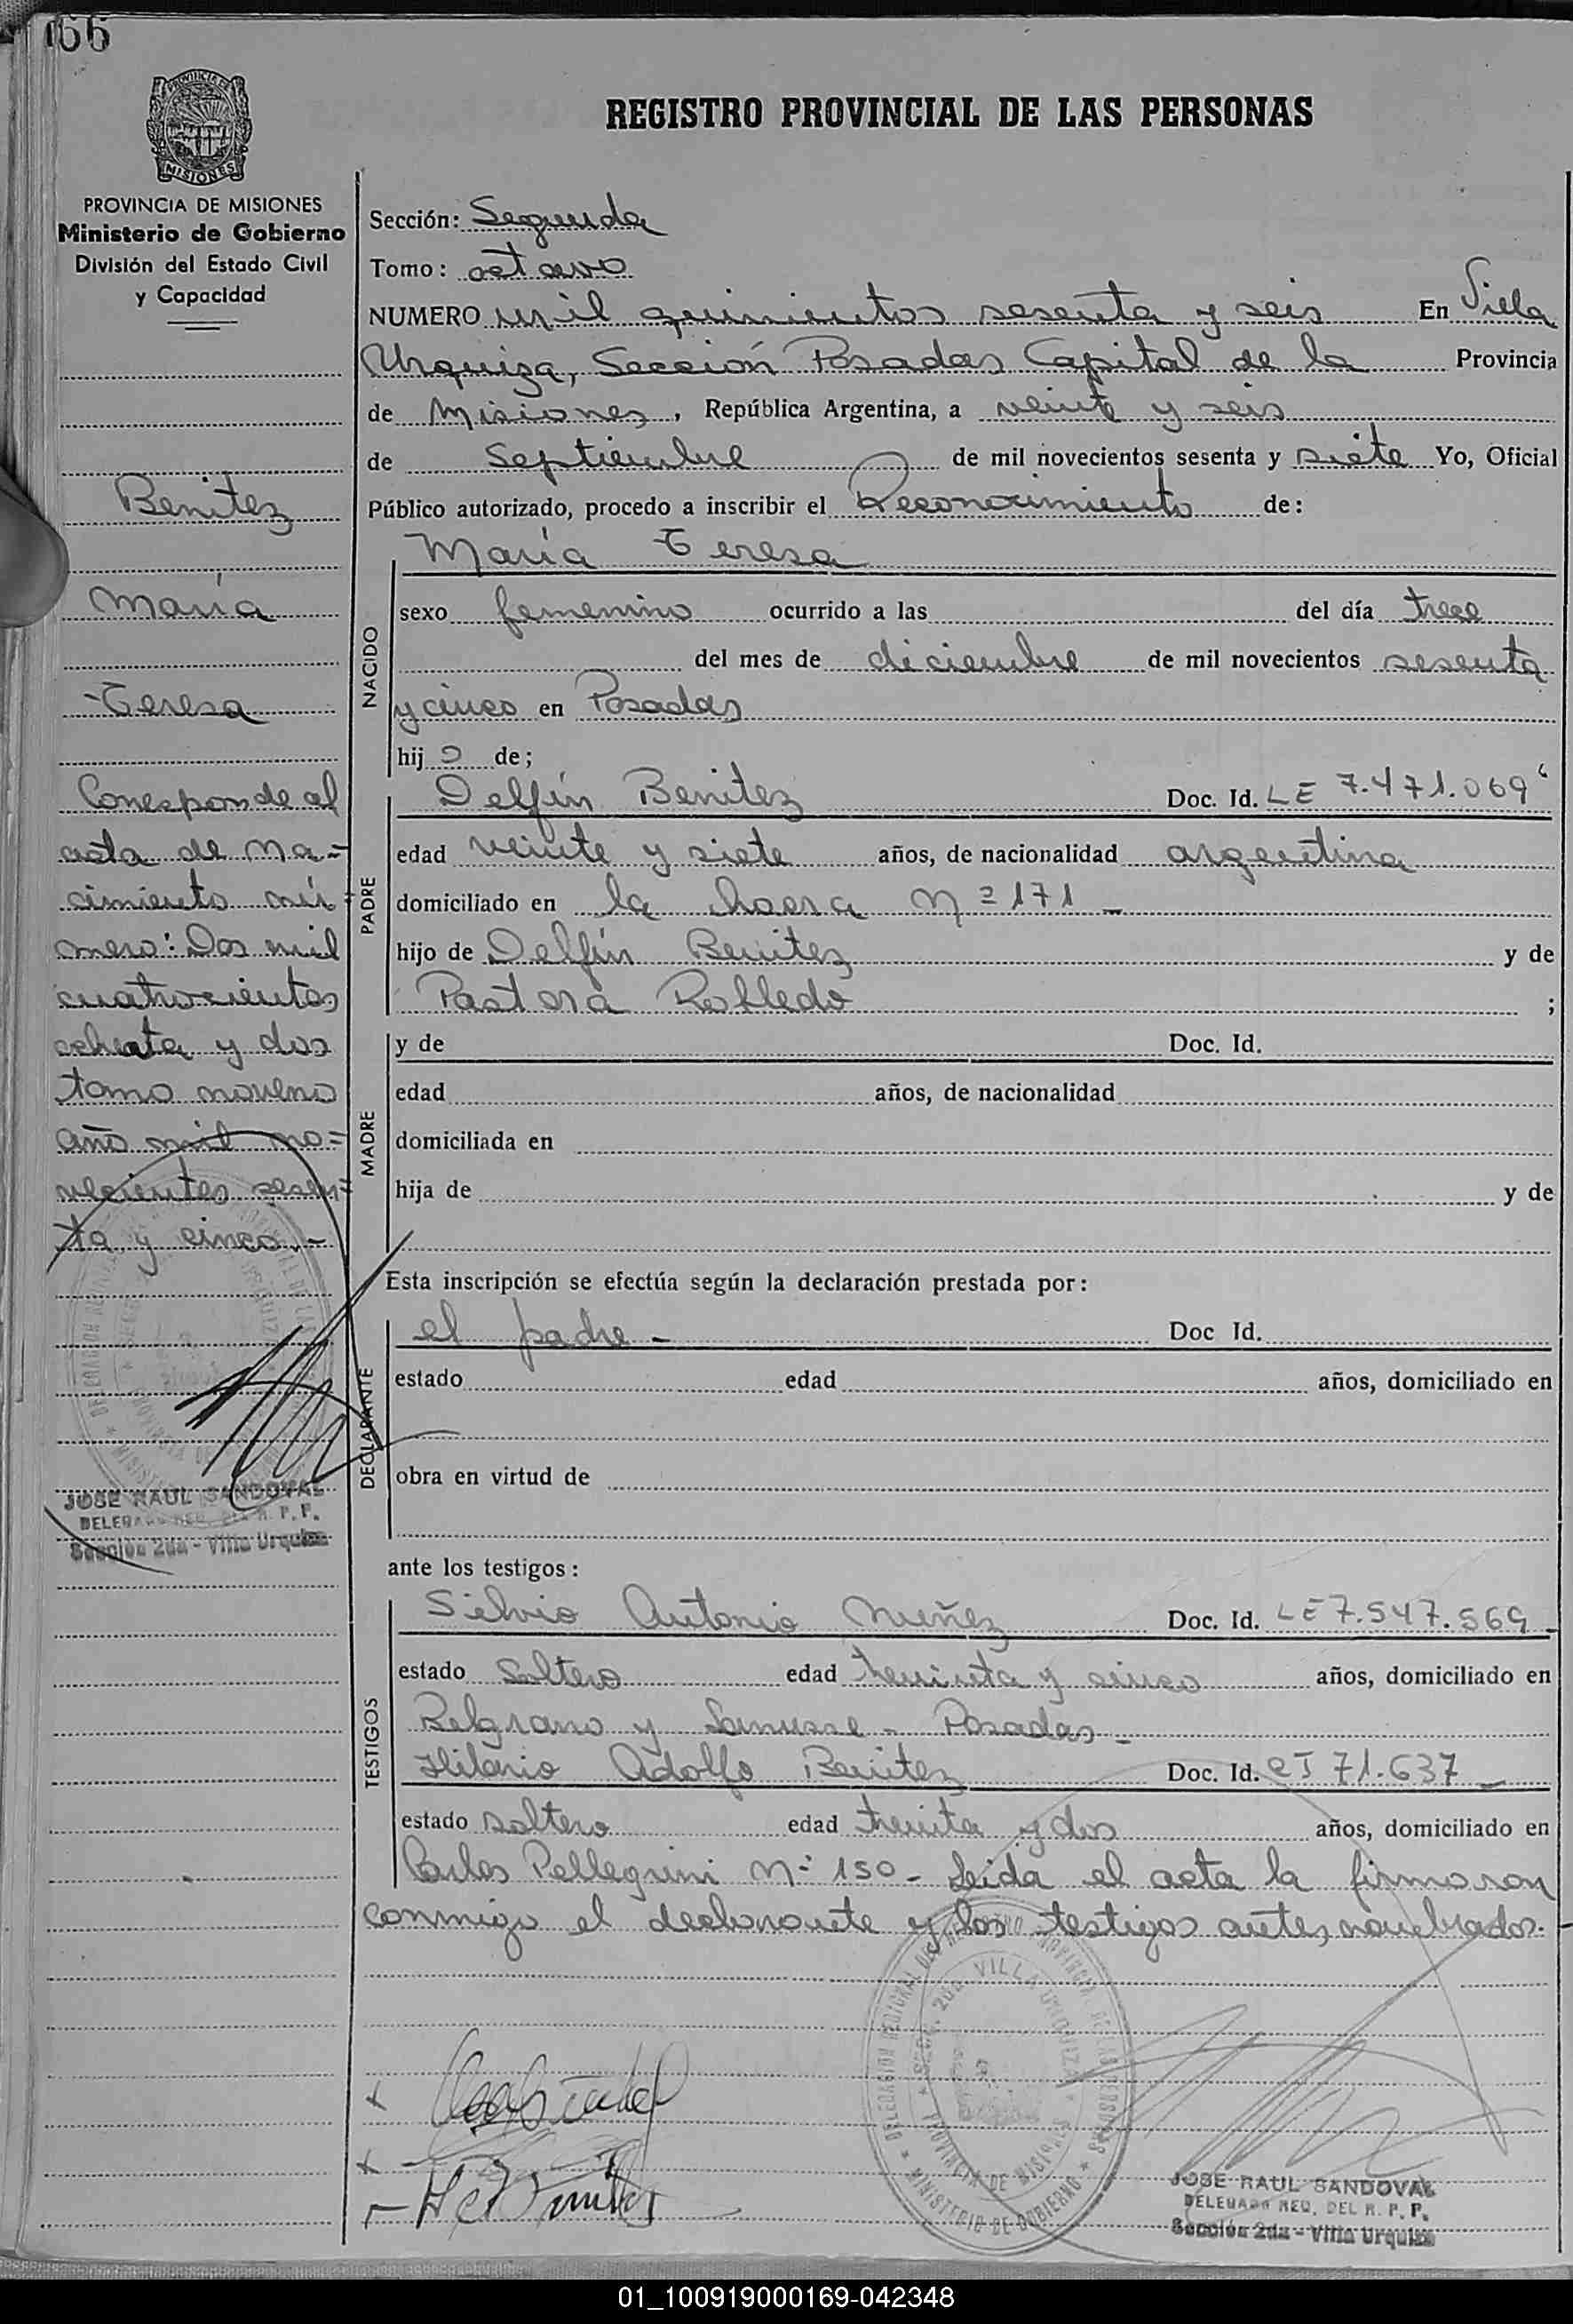 166
PROVINCIA DE
MISIONES
PROVINCIA DE MISIONES
Ministerio de Gobierno
División del Estado Civil
y Capacidad
Benitez
María
Teresa
Corresponde al
acta de na=
cimiento nú=
mero: Dos mil
cuatrocientos
ochenta y dos
tomo noveno
año mil no=
vecientos sesen=
ta y cinco.-
JOSE RAUL SANDOVAL
DELEGADO REG. DEL R. P. P.
Sección 2da - Villa Urquiza
REGISTRO PROVINCIAL DE LAS PERSONAS
Sección: Segunda
Tomo: octavo
NUMERO mil quinientos sesenta y seis En Villa
Urquiza, Sección Posadas Capital de la Provincia
de Misiones, República Argentina, a veinte y seis
de Septiembre de mil novecientos sesenta y siete Yo, Oficial
Público autorizado, procedo a inscribir el Reconocimiento de:
María Teresa
NACIDO
sexo femenino ocurrido a las del día trece
del mes de diciembre de mil novecientos sesenta
y cinco en Posadas
hij a de;
PADRE
Delfín Benitez Doc. Id. LE 7.471.069
edad veinte y siete años, de nacionalidad argentina
domiciliado en la chacra Nº 171 -
hijo de Delfín Benitez y de
Pastora Robledo ;
MADRE
y de Doc. Id.
edad años, de nacionalidad
domiciliada en
hija de y de
Esta inscripción se efectúa según la declaración prestada por:
DECLARANTE
el padre - Doc Id.
estado edad años, domiciliado en
obra en virtud de
ante los testigos:
TESTIGOS
Silvio Antonio Nuñez Doc. Id. LE 7.547.569 -
estado Soltero edad treinta y cinco años, domiciliado en
Belgrano y Lanusse - Posadas -
Hilario Adolfo Benitez Doc. Id. CI 71.637 -
estado soltero edad treinta y dos años, domiciliado en
Carlos Pellegrini Nº 150 - Leida el acta la firmaron
conmigo el declarante y los testigos antes nombrados.
DELEGACION REGIONAL DEL REGISTRO PROVINCIAL DE LAS PERSONAS
SECC. 2da VILLA URQUIZA
PROVINCIA DE MISIONES
MINISTERIO DE GOBIERNO
JOSE RAUL SANDOVAL
DELEGADO REG. DEL R. P. P.
Sección 2da - Villa Urquiza
01_100919000169-042348